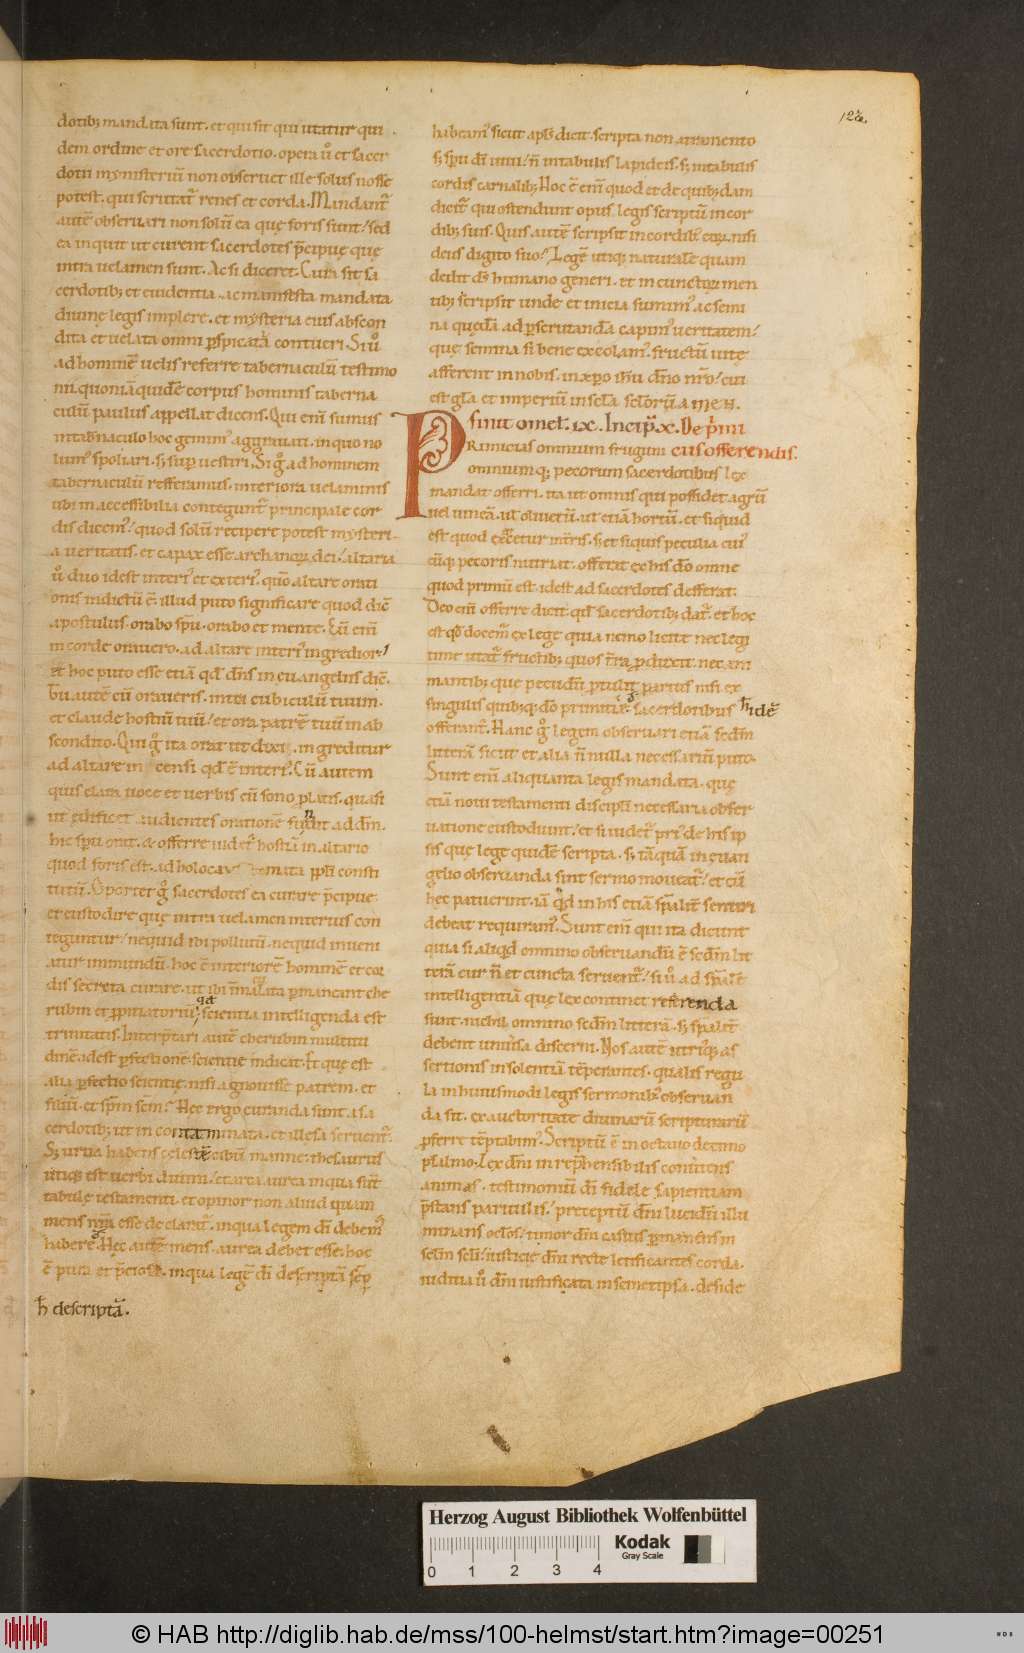 122.
dotib; mandata sunt. et qui sit qui utatur qui
dem ordine et ore sacerdotio. opera ů et sacer
dotii mynisteriū non obseruet ille solus nosse
potest. qui scrutat᷑ renes et corda. Mandant᷑
autē obseruari non solū ea quę foris sunt. sed
ea inquit ut curent sacerdotes p̄cipuę quę
intra uelamen sunt. Ac si diceret. Cura sit sa
cerdotib; et euidentia ac manifesta mandata
diuinę legis implere. et mysteria eius abscon
dita et uelata omni ꝑspicatiā contueri. Si ů
ad hominē uelis referre tabernaculū testimo
nii. quoniā quidē corpus hominis taberna
culū paulus appellat dicens. Qui eni͞ sumus
in tab̄naculo hoc gemim᷒ aggrauati. in quo no
lum᷒ spoliari. s; suꝑuestiri. Si g̊ ad hominem
tabernaculū refferamus. interiora uelaminis
ubi inaccessibilia contegunt᷑ principale cor
dis dicem᷒. quod solū recipere potest mysteri
a ueritatis. et capax esse archanoꝝ dei. altaria
ů duo id est interi᷒ et exteri᷒. qm̄ altare orati
onis indictū ē. illud puto significare quod dic̄
apostulus. orabo sp̄u. orabo et mente. Cū eni͞
in corde orauero. ad altare interi᷒ ingredior.
et hoc puto esse etiā qd̄ dn̄s in euangeliis dic̄.
tu autē cū oraueris. intra cubiculū tuum.
et claude hostiū tuū. et ora patrē tuū in ab
scondito. Qui g̊ ita orat ut dixi. ingreditur
ad altare in censi qd̄ ē interi᷒. Cū autem
quis clara uoce et uerbis cū sono ꝓlatis. quasi
ut ędificet audientes orationē fundit ad dm̄.
hic sp̄u orat. & offerre uidet᷑ hostiā in altario
quod foris est. ad holocaustomata pp̄li consti
tutū. Oportet g̊ sacerdotes ea curare p̄cipue
et custodire quę intra uelamen interius con
teguntur. ne quid ibi pollutū. ne quid inueni
atur inmundū. hoc ē interiorē hominē et cor
dis secreta curare. ut ibi inmaculata ꝑmaneant che
rubin et ꝓpiciatoriū. qd̄ scientia intelligenda est
trinitatis. Interp̄tari autē cherubin multitu
dinē. id est ꝑfectionē scientię indicat. Et quę est
alia ꝑfectio scientię. nisi agnouisse patrem. et
filiū. et sp̄m scm̄. Hec ergo curanda sunt a sa
cerdotib; ut in contaminata. et illesa seruent᷑.
S; urna habens celestē cibū manne. thesaurus
utiq; est uerbi diuini. et arca aurea in qua sunt
tabulę testamenti. et opinor non aliud quam
mens nr̄a esse declarat᷑. in qua legem di͞ debem᷒
habere. Hęc autē mens. aurea debet esse. hoc
ē pura et p̄ciosa. in qua legē di͞ descriptā sēp
h̄ descriptā.
habeam᷒ sicut apl̄s dicit. scripta non atramento
s; sp̄u di͞ uiui. n̄ in tabulis lapideis. s; in tabulis
cordis carnalib; Hoc ē eni͞ quod et de quib;dam
dicit᷑ qui ostendunt opus legis scriptū in cor
dib; suis. Quis autē scripsit in cordib; eoꝝ. nisi
deus digito suo. Legē utiq; naturalē quam
dedit ds̄ humano generi. et in cunctoꝝ men
tib; scripsit unde et inicia sumim᷒ ac semi
na quędā ad ꝑscrutanda capim᷒ ueritatem.
quę semina si bene excolam᷒. fructū uitę
afferent in nobis. in xp̄o ih̄u dn̄o nr̄o. cui
est gl̄a et imperiū in scl̄a scl̄orū amen.
Finit omel. ix. Incip̄ x. De prim
Primicias omnium frugum eius offerendis.
omniumq; pecorum sacerdotibus lex
mandat offerri. ita ut omnis qui possidet agrū
uel uineā. ut̄ oliuetū. ut̄ etiā hortū. et siquid
est quod excętur in tr̄is. s; et siquis peculia cui᷒
cūq; pecoris nutriat. offerat ex his dō omne
quod primū est. id est ad sacerdotes defferat.
Deo eni͞ offerre dicit. qd̄ sacerdotib; dat᷑. et hoc
est qd̄ docem᷑ ex lege quia nemo licite nec legi
time utat᷑ fructib; quos t̄ra ꝓduxit. nec ani
mantib; quę pecudū ꝓtulit partus nisi ex
singulis quibusq; dō primitię sacerdotibus h̄ idē
offerant᷑. Hanc g̊ legem obseruari etiā scdm̄
litterā sicut et alia n̄ nulla necessariū puto.
Sunt eni͞ aliquanta legis mandata. quę
etiā noui testamenti discipl̄i necessaria obser
uatione custodiunt. et si uidet᷑ pri᷒ de his ip
sis quę lege quidē scripta. s; tāquā in euan
gelio obseruanda sint sermo moueat᷑. et cū
hec patuerint. iā qd̄ in his etiā sp̄alit̄ sentiri
debeat requiram᷒. Sunt eni͞ qui ita dicunt
quia si aliqd̄ omnino obseruandū ē scdm̄ lit
terā cur n̄ et cuncta seruent᷑. si ů ad sp̄alē
intelligentiā quę lex continet referenda
sunt. nichil omnino scdm̄ litterā. s; sp̄alit̄
debent uniuersa discerni. Nos autē utriq; as
sertionis insolentiā tēperantes. qualis regu
la in huiusmodi legis sermonib; obseruan
da sit. ex auctoritate diuinarū scripturarū
ꝓferre tēptabim᷒. Scriptū ē in octauo decimo
psalmo. Lex dn̄i inrep̄hensibilis conuertens
animas. testimoniū di͞ fidele sapientiam
p̄stans paruulis. preceptū dn̄i lucidū illu
minans oclos. timor dn̄i castus ꝑmanens in
scl̄m scl̄i. iusticię dn̄i recte letificantes corda.
iuditia ů dn̄i iustificata in semetipsa. deside
Herzog August Bibliothek Wolfenbüttel
0 1 2 3 4
Kodak
Gray Scale
© HAB http://diglib.hab.de/mss/100-helmst/start.htm?image=00251